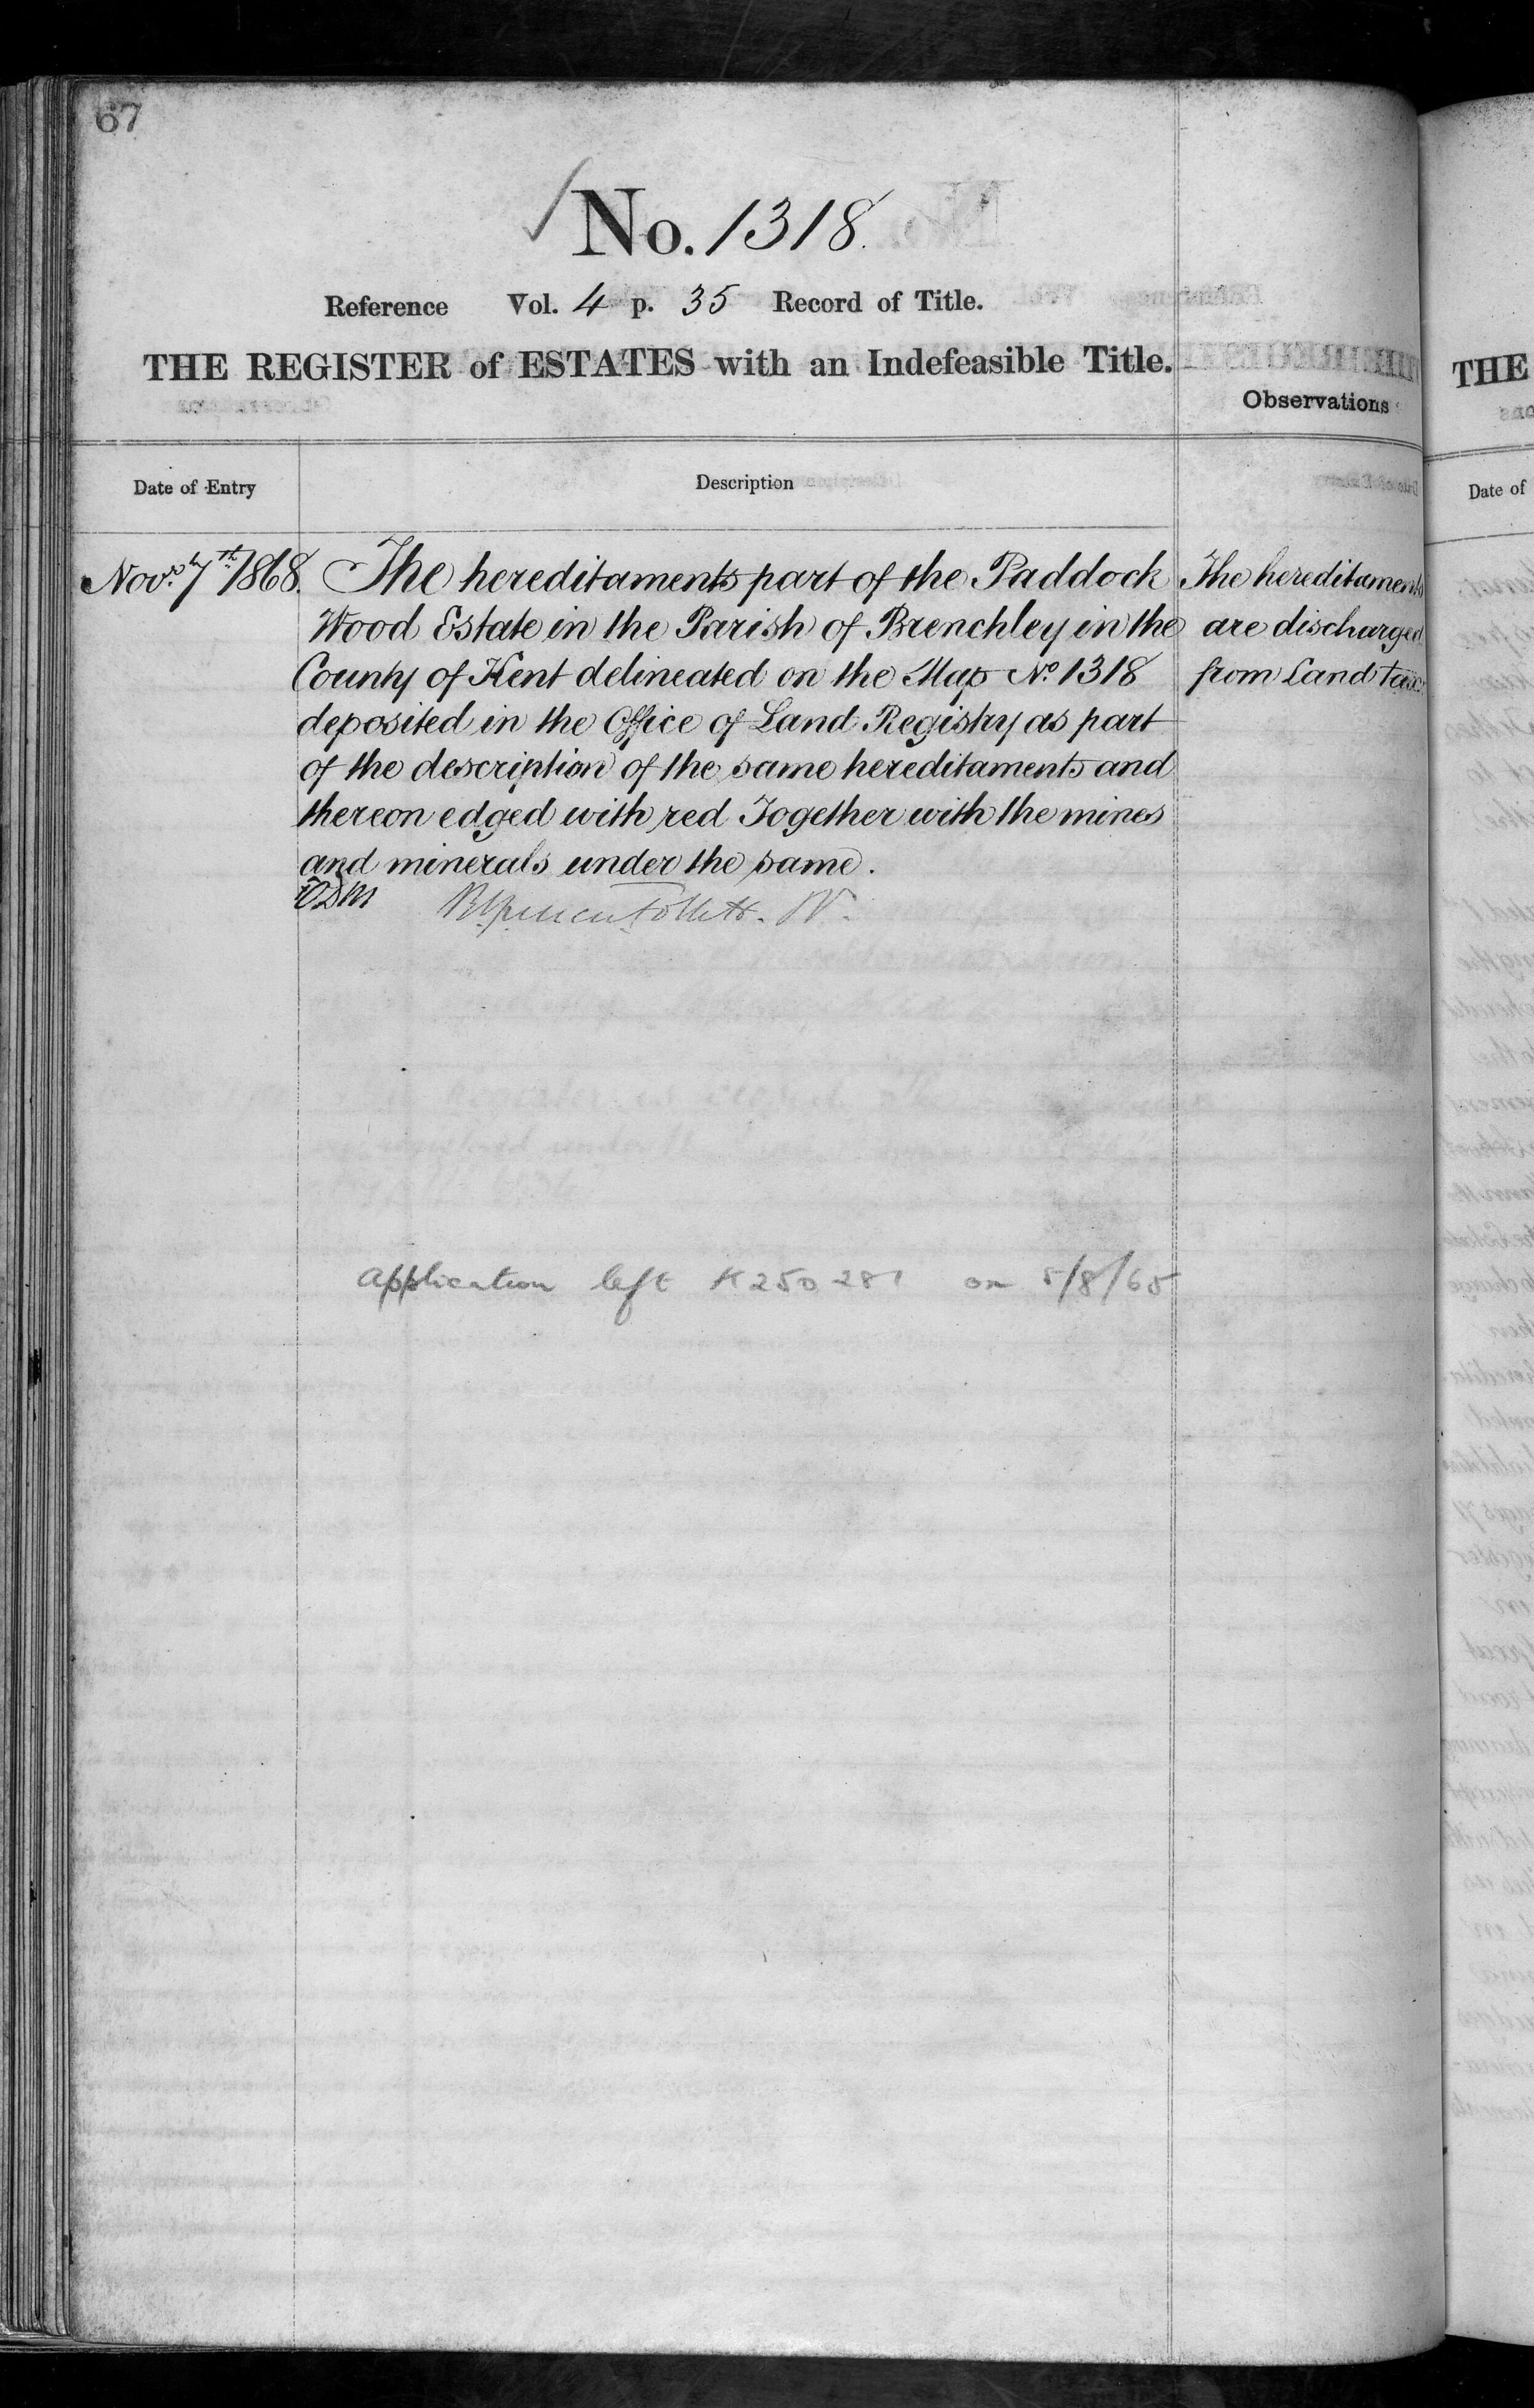 67
No. 1318.
Reference Vol. 4 p. 35 Record of Title.
THE REGISTER of ESTATES with an Indefeasible Title.
Observations
Date of Entry
Description
Novr. 7th 1868.
The hereditaments part of the Paddock
Wood Estate in the Parish of Brenchley in the
County of Kent delineated on the Map No. 1318
deposited in the Office of Land Registry as part
of the description of the same hereditaments and
thereon edged with red Together with the mines
and minerals under the same.
The hereditaments
are discharged
from Land Tax.
Application left K250281 on 5/8/65
THE
Date of